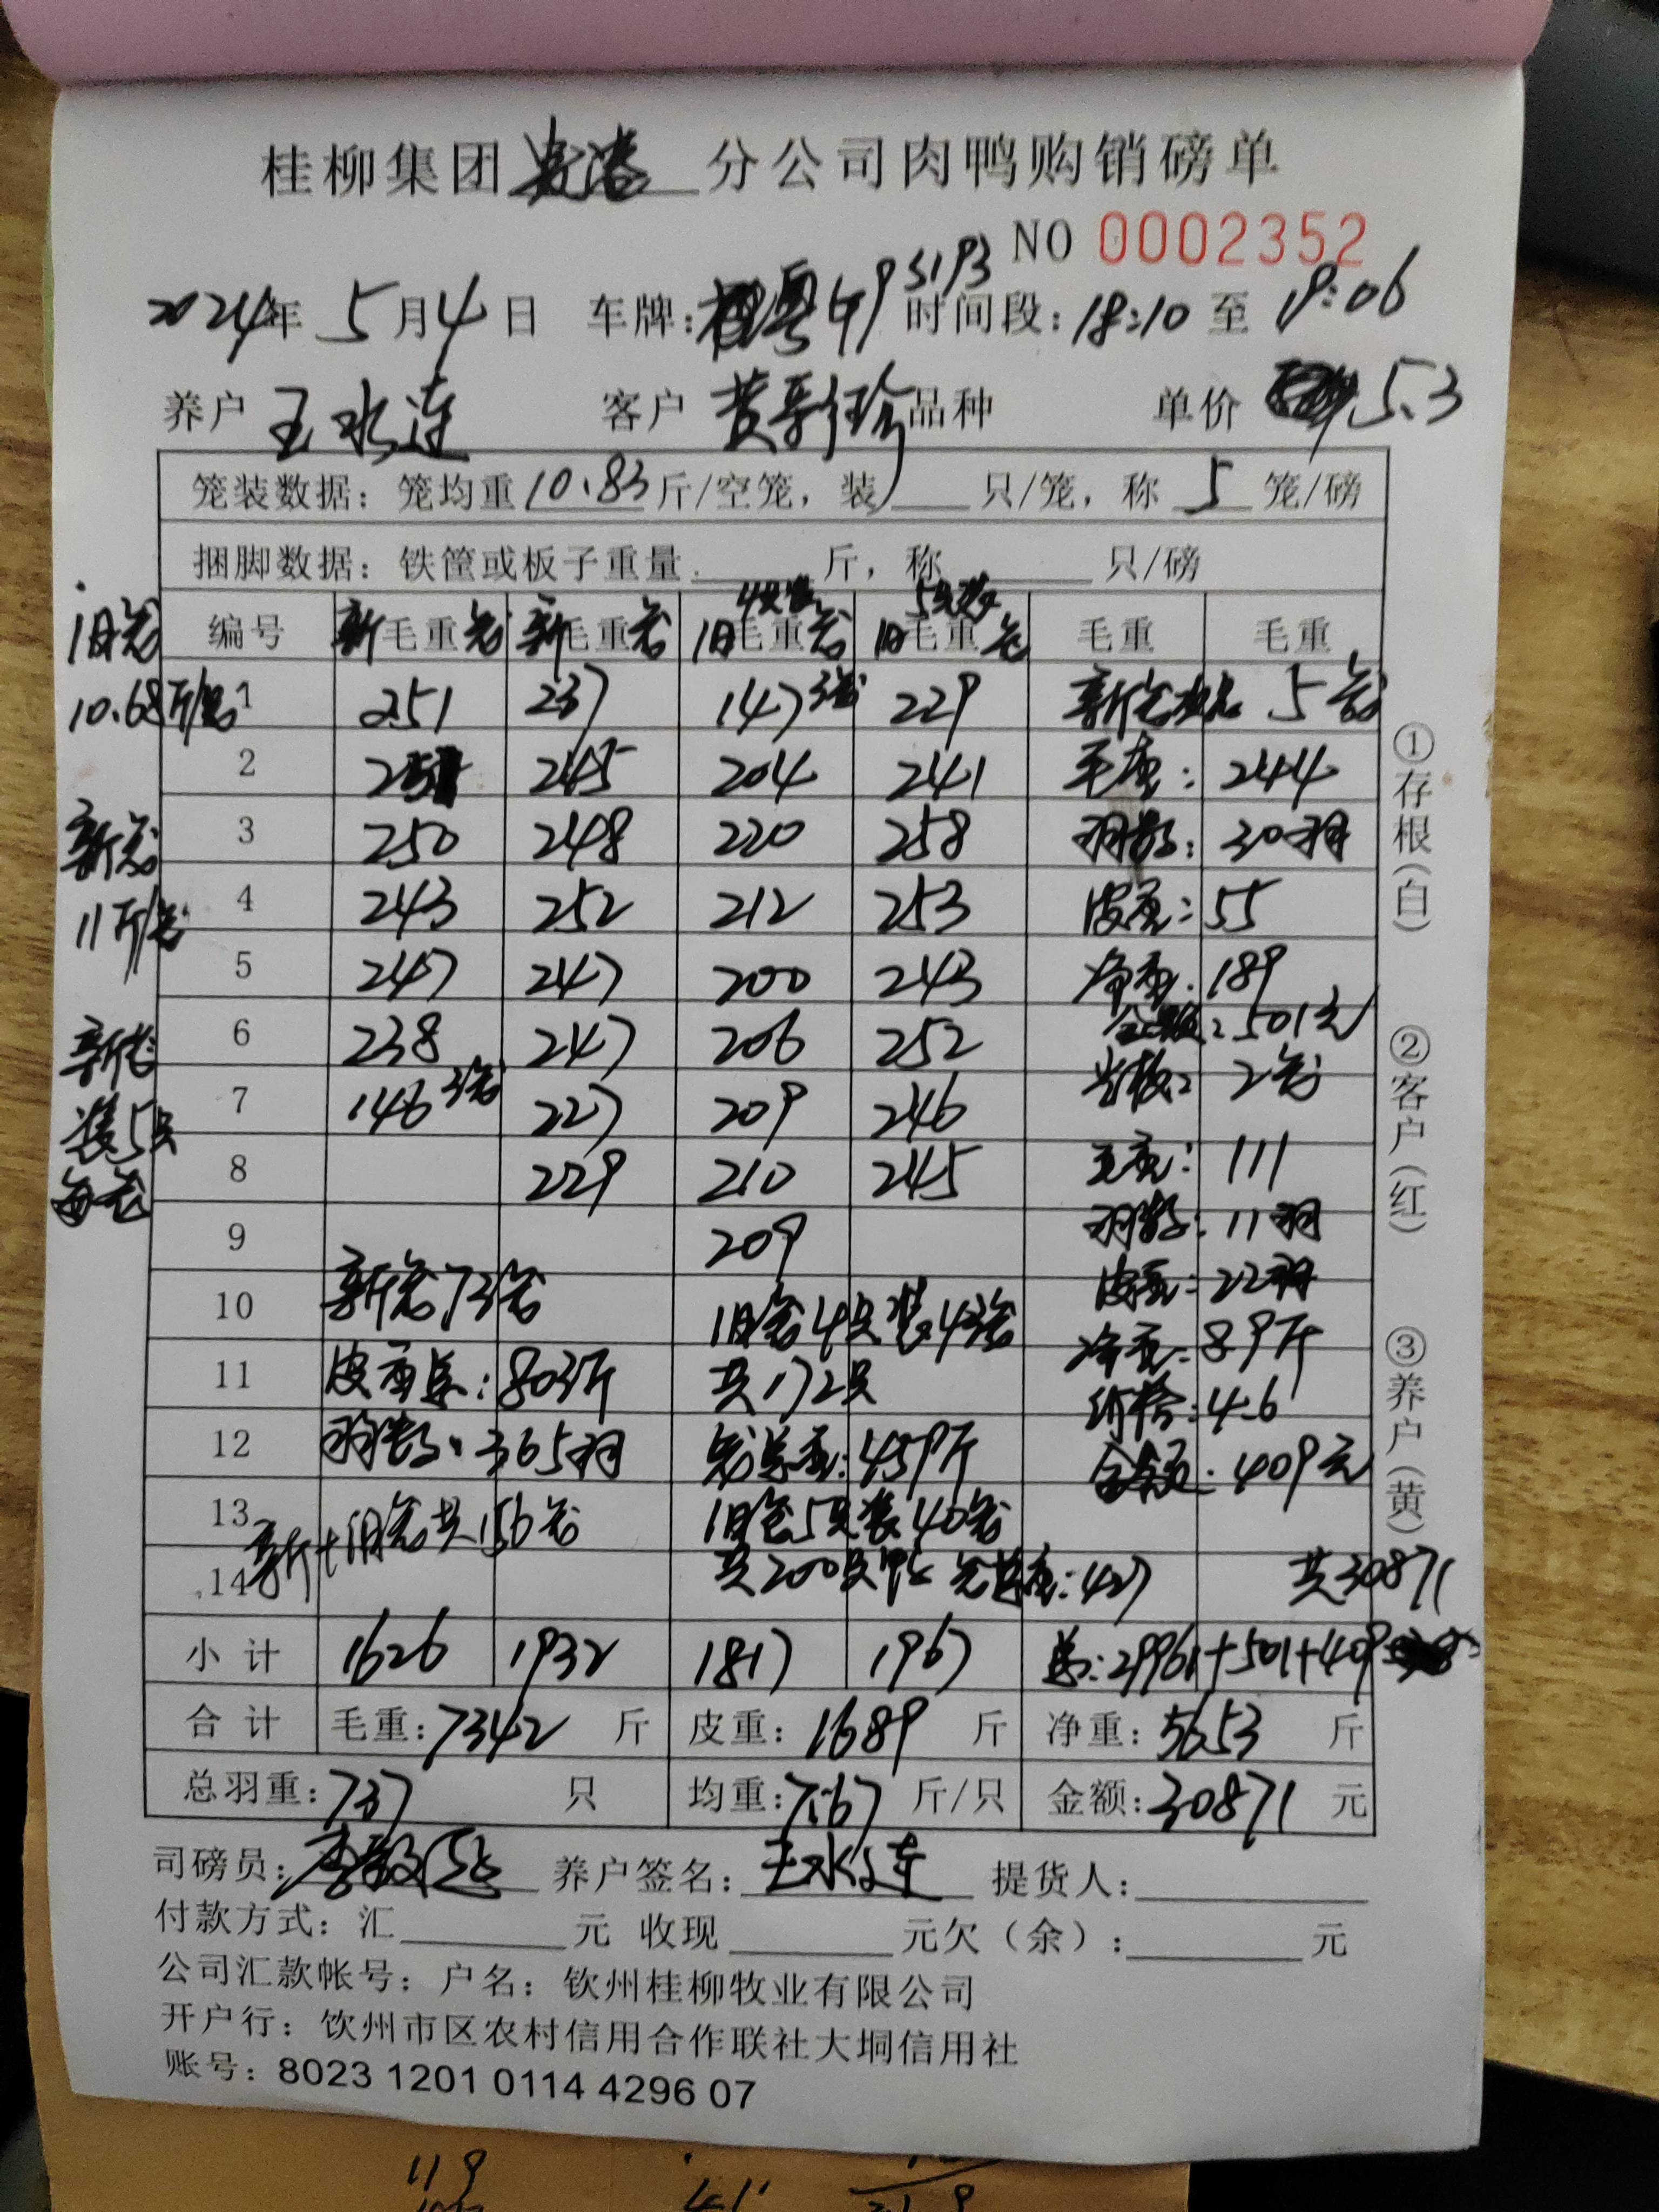 桂柳集团 分公司肉鸭购销磅单
NO 0002352
2024年 5月4日 车牌: 粤 S1P3 时间段: 18:10 至 19:06
养户 王水连 客户 黄 珍 品种 单价 5.3
笼装数据: 笼均重 10.83 斤/空笼, 装 只/笼, 称 5 笼/磅
捆脚数据: 铁筐或板子重量 斤, 称 只/磅
4只装 5只装
旧笼 编号 新毛重笼 新毛重笼 旧毛重笼 旧毛重笼 毛重 毛重
10.68斤/笼 1 251 237 147 3笼 229 新笼 5笼
2 251 245 204 241 毛重: 244
新笼 3 250 248 220 258 羽数: 30羽
11斤/笼 4 243 252 212 253 皮重: 55
5 247 247 200 243 净重: 189
新笼 6 238 247 206 252 金额: 501元
装5只 7 146 3笼 227 209 246 2笼
每笼 8 229 210 245 毛重: 111
9 209 羽数: 11羽
10 新笼73笼 旧笼4只装43笼 皮重: 22羽
11 皮重总: 803斤 共172只 净重: 89斤
价格: 4.6
12 羽数: 365羽 笼总重: 459斤 金额: 409元
13 新+旧笼共156笼 旧笼5只装40笼
14 共200只鸭 笼总重: 427 共30871
小计 1626 1932 1817 1967 总: 29961+501+409
合计 毛重: 7342 斤 皮重: 1689 斤 净重: 5653 斤
总羽重: 737 只 均重: 7.67 斤/只 金额: 30871 元
①存根(白) ②客户(红) ③养户(黄)
司磅员: 养户签名: 王水连 提货人:
付款方式: 汇 元 收现 元欠(余): 元
公司汇款帐号: 户名: 钦州桂柳牧业有限公司
开户行: 饮州市区农村信用合作联社大垌信用社
账号: 8023 1201 0114 4296 07
119